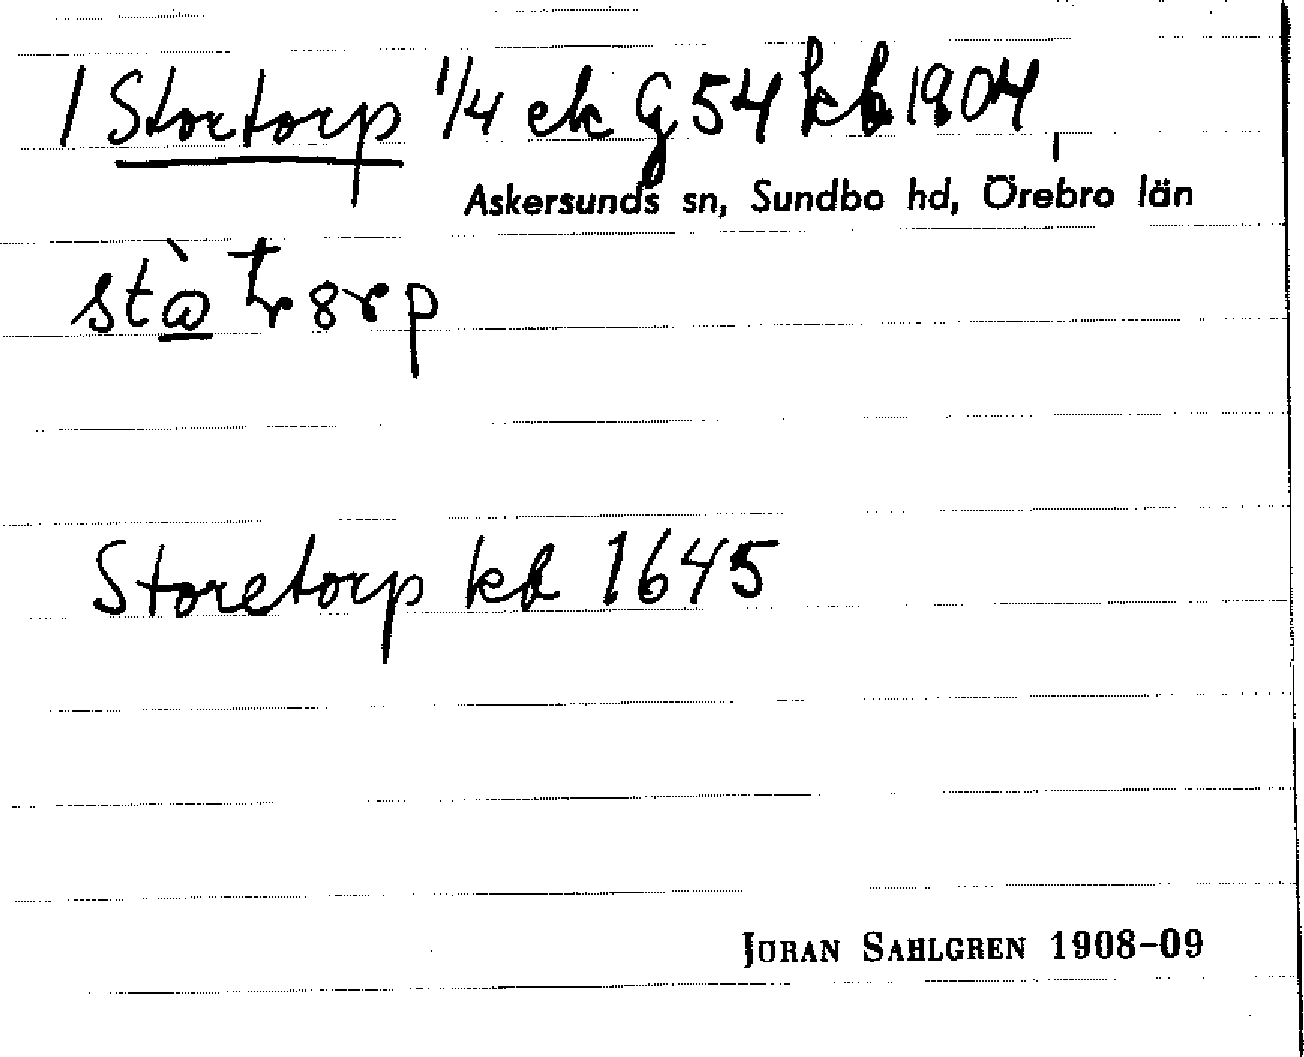 1 Stortorp 1/4 ek G 54 kb 1904
Askersunds sn, Sundbo hd, Örebro län
Storetorp kb 1645
JÖRAN SAHLGREN 1908-09